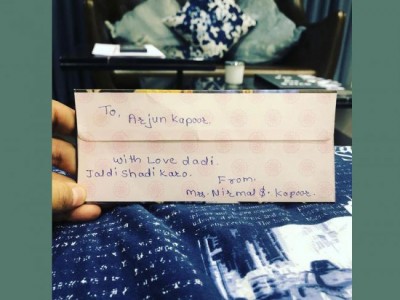 To,
Arjun Kapoor.
With Love dadi.
Jaldi Shadi Karo.
From,
Mrs. Nirmal S. Kapoor.